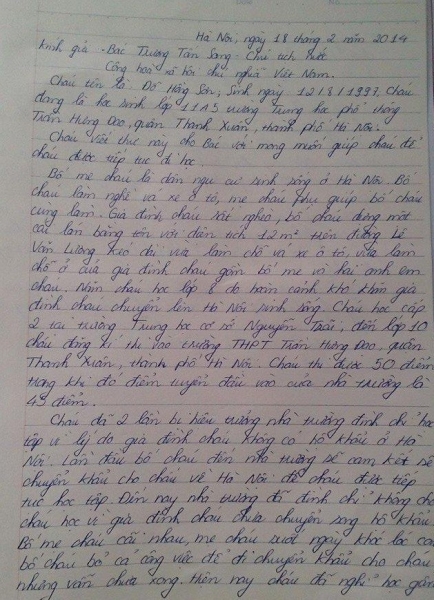 Hà Nội, ngày 18 tháng 2 năm 2014
Kính gửi - Bác Trương Tấn Sang - Chủ tịch nước
Cộng hoà xã hội chủ nghĩa Việt Nam.
Cháu tên là Đỗ Hồng Sơn, sinh ngày 12/8/1997, Cháu
đang là học sinh lớp 11A5 trường Trung học phổ thông
Trần Hưng Đạo, quận Thanh Xuân, thành phố Hà Nội.
Cháu viết thư này cho Bác với mong muốn giúp cháu để
cháu được tiếp tục đi học.
Bố mẹ cháu là dân ngụ cư sinh sống ở Hà Nội. Bố
cháu làm nghề vá xe ô tô, mẹ cháu phụ giúp bố cháu
cùng làm. Gia đình cháu rất nghèo, bố cháu dựng một
cái lán bằng tôn với diện tích 12m² trên đường Lê
Văn Lương kéo dài vừa làm chỗ vá xe ô tô, vừa làm
chỗ ở của gia đình cháu gồm bố mẹ và hai anh em
cháu. Năm cháu học lớp 6 do hoàn cảnh khó khăn gia
đình cháu chuyển lên Hà Nội sinh sống. Cháu học cấp
2 tại trường Trung học cơ sở Nguyễn Trãi, đến lớp 10
cháu đăng kí thi vào trường THPT Trần Hưng Đạo, quận
Thanh Xuân, thành phố Hà Nội. Cháu thi được 50 điểm
trong khi đó điểm tuyển đầu vào của nhà trường là
45 điểm.
Cháu đã 2 lần bị hiệu trưởng nhà trường đình chỉ học
tập vì lý do gia đình cháu không có hộ khẩu ở Hà
Nội. Lần đầu bố cháu đến nhà trường cam kết sẽ
chuyển khẩu cho cháu về Hà Nội để cháu được tiếp
tục học tập. Đến nay nhà trường đã đình chỉ không cho
cháu học vì gia đình cháu chưa chuyển song hộ khẩu.
Bố mẹ cháu cãi nhau, mẹ cháu suốt ngày khóc lóc còn
bố cháu bỏ cả công việc để đi chuyển khẩu cho cháu
nhưng vẫn chưa xong. Hiện nay cháu đã nghỉ học gần